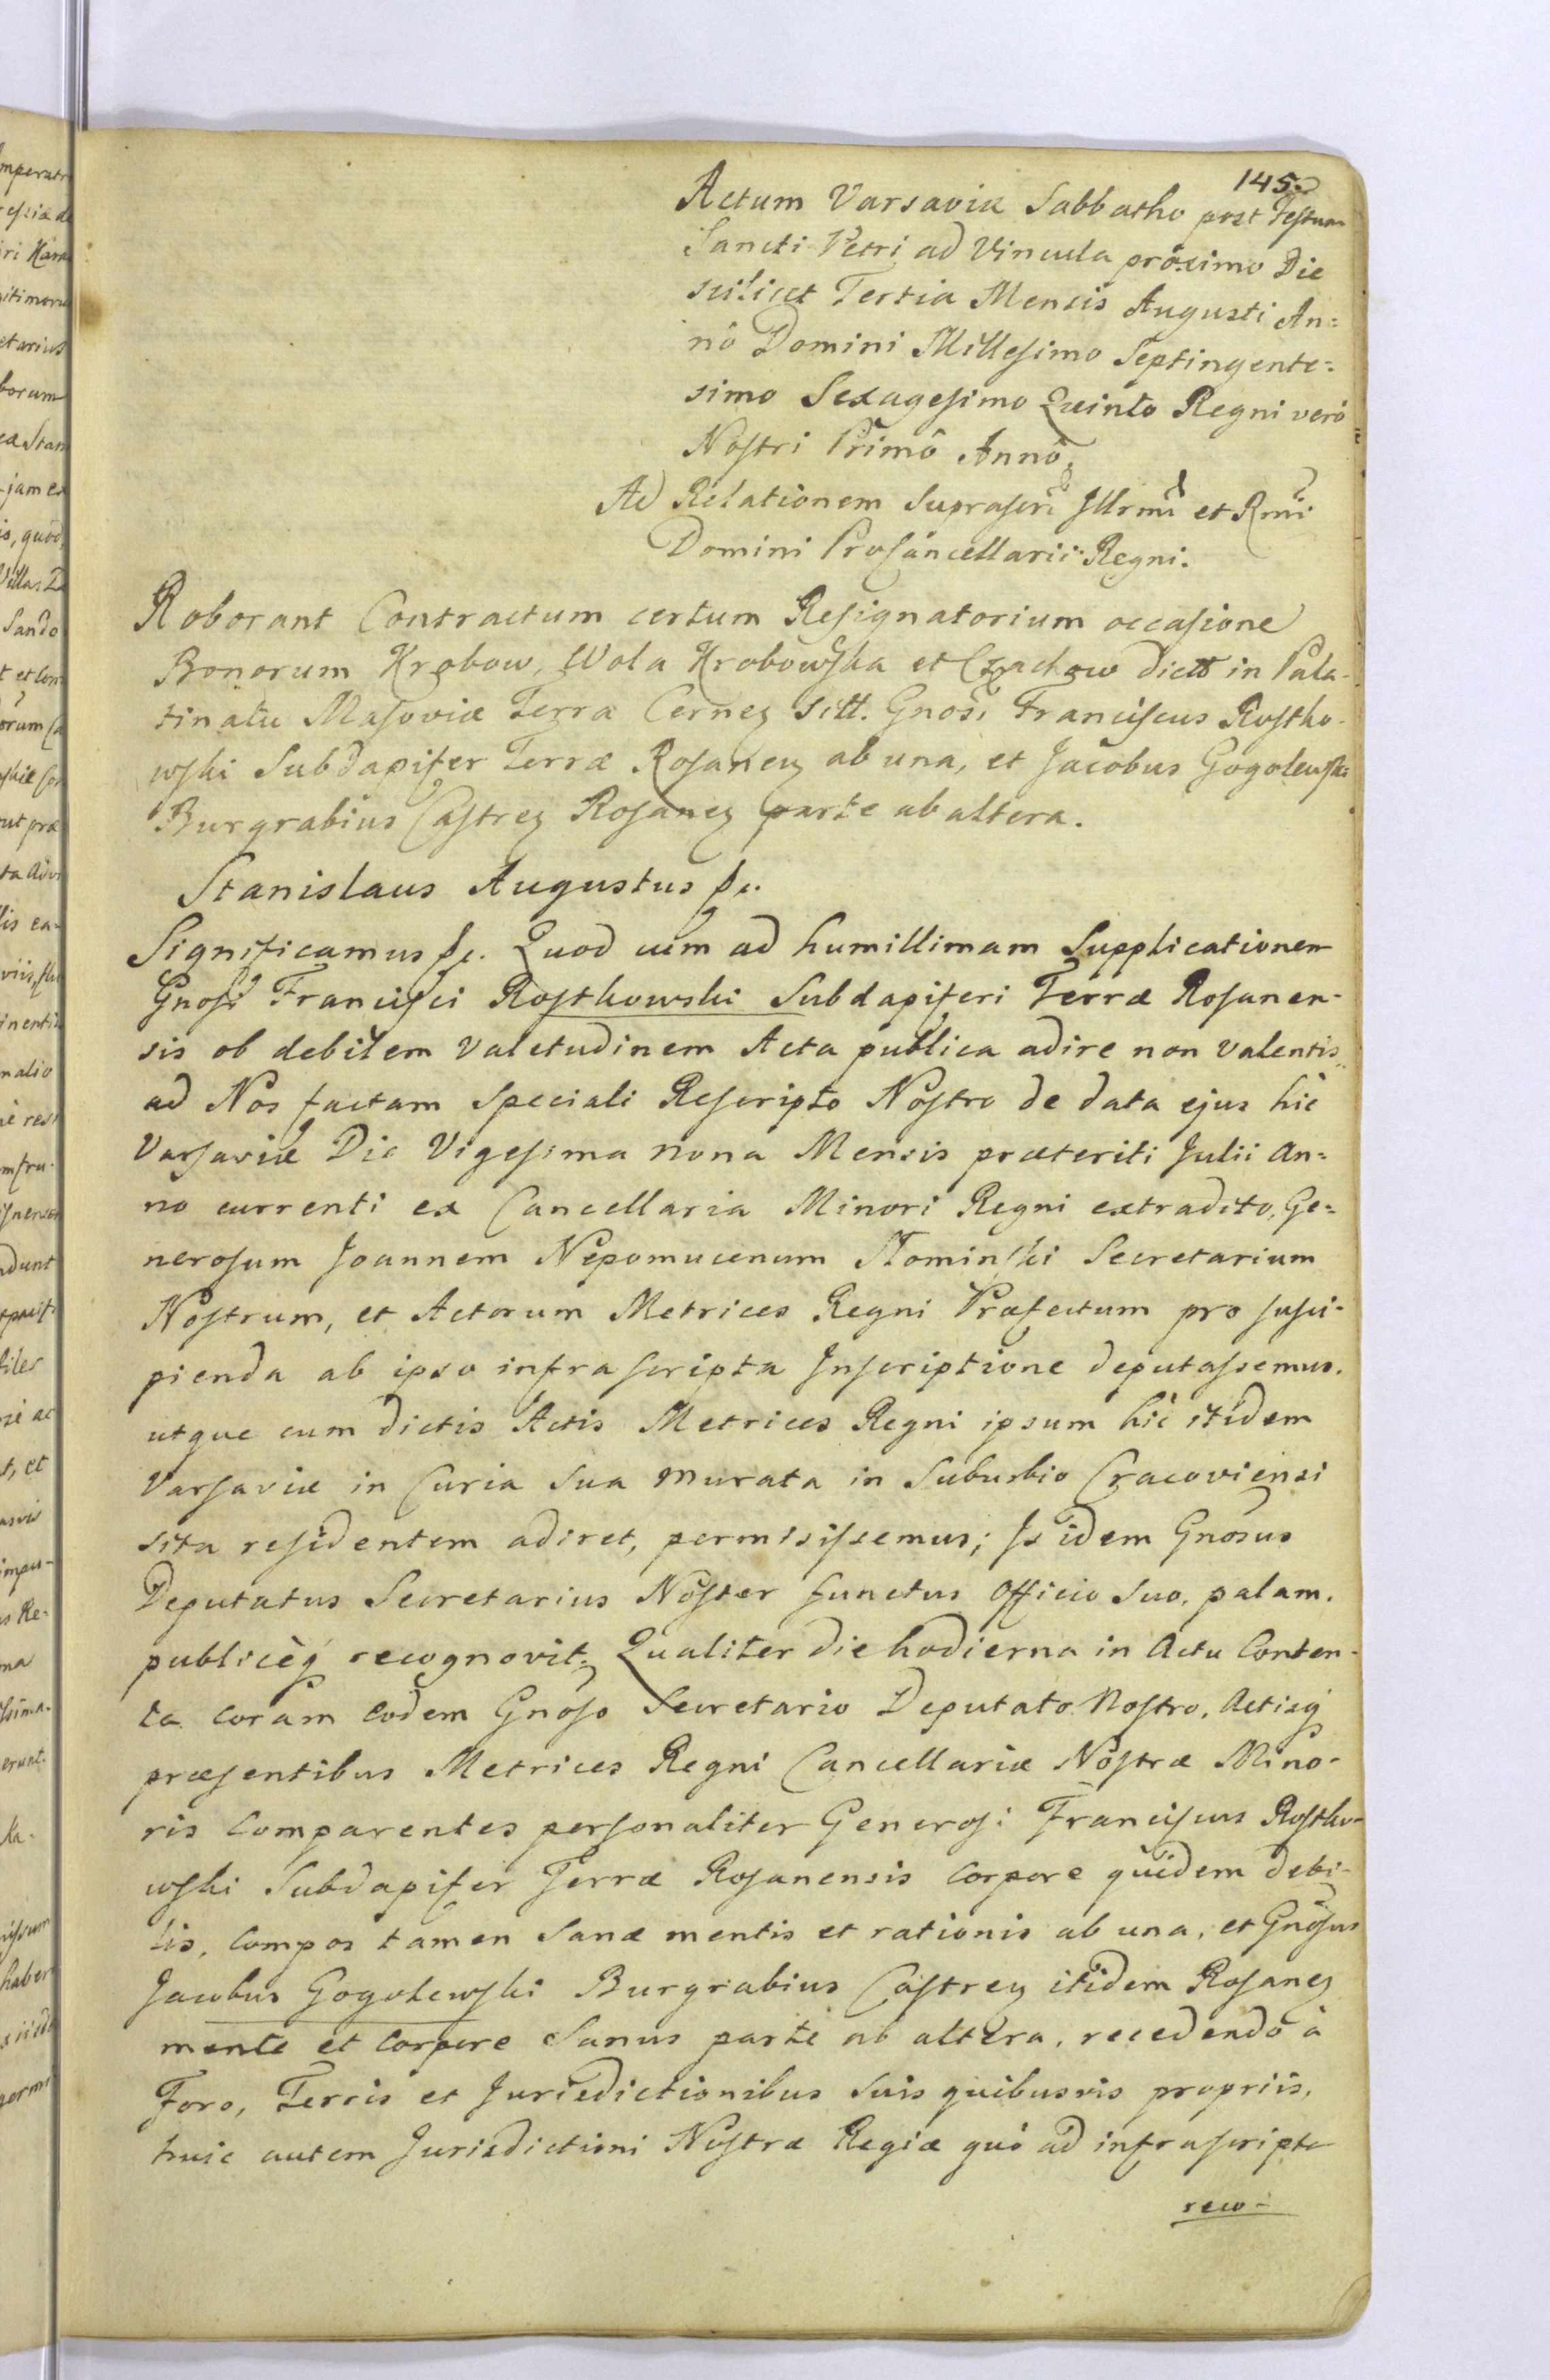 145.
Actum Varsaviæ Sabbatho post Festum
Sancti Petri ad Vincula proximo Die
scilicet Tertia Mensis Augusti An=
nô Domini Millesimo Septingente=
simo Sexagesimo Quinto Regni verò
Nostri Primô Annô.
Ad Relationem Suprascri Jllrmi et Rmi
Domini Procancellarii Regni.
Roborant Contractum certum Resignatorium occasione
Bonorum Krobow, Wola Krobowska et Czachow dictt in Pala-
tinatu Masoviæ Terra Cernen sitt. Gnosi Franciscus Rostko-
wski Subdapifer Terræ Rosanen ab una, et Jacobus Gogolewski
Burgrabius Castren Rosanen parte ab altera.
Stanislaus Augustus &c.
Significamus &c. Quod cum ad humillimam Supplicationem
Gnosi Francisci Rostkowski Subdapiferi Terræ Rosanen-
sis ob debilem valetudinem Acta publica adire non valentis
ad Nos factam Speciali Rescripto Nostro de data ejus hic
Varsaviæ Die Vigesima nona Mensis præteriti Julii An=
no currenti ex Cancellaria Minori Regni extradito, Ge=
nerosum Joannem Nepomucenum Słominski Secretarium
Nostrum, et Actorum Metrices Regni Præfectum pro susci-
pienda ab ipso infrascripta Jnscriptione deputassemus.
utque cum dictis Actis Metrices Regni ipsum hic itidem
Varsaviæ in Curia sua murata in Suburbio Cracoviensi
sita residentem adiret, permisissemus; Js idem Gnosus
Deputatus Secretarius Noster functus Officio Suo, palam.
publicèq recognovit. Qualiter die hodierna in Actu Conten-
ta coram eodem Gnoso Secretario Deputato Nostro, Actisq
præsentibus Metrices Regni Cancellariæ Nostræ Mino-
ris Comparentes personaliter Generosi Franciscus Rostko-
wski Subdapifer Terræ Rosanensis Corpore quidem debi-
lis, Compos tamen Sanæ mentis et rationis ab una, et Gnosus
Jacobus Gogolewski Burgrabius Castren itidem Rosanen
mente et Corpore Sanus parte ab altera, recedendo à
Foro, Terris et Jurisdictionibus Suis quibusvis propriis,
huic autem Jurisdictioni Nostræ Regiæ quò ad infrascripta
reco-